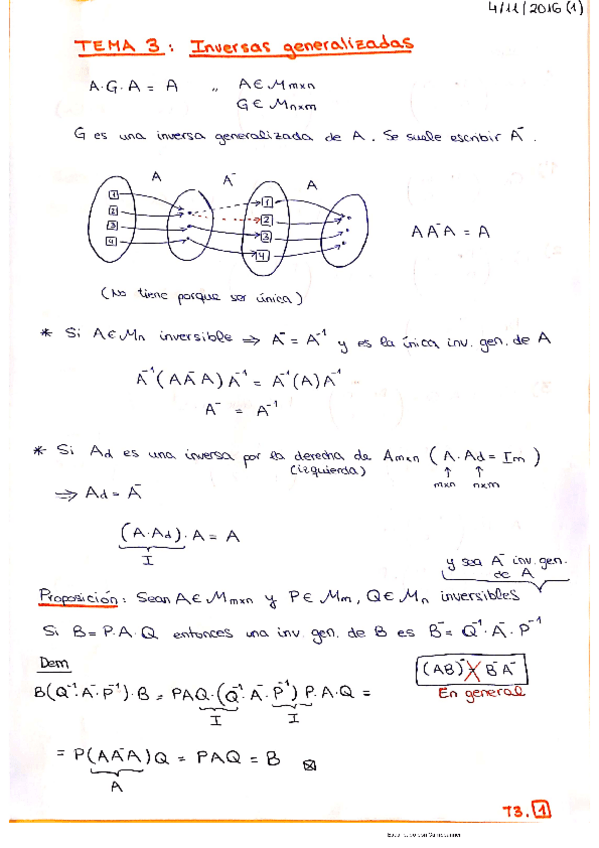 4/11/2016 (1)
TEMA 3: Inversas generalizadas
A·G·A = A ,, A∈Mmxn
G∈Mnxm
G es una inversa generalizada de A. Se suele escribir A⁻.
A A⁻ A
1 1
2 2
3 3
4 4
AA⁻A = A
(No tiene porque ser única)
* Si A∈Mn inversible ⇒ A⁻ = A⁻¹ y es la única inv. gen. de A
A⁻¹(AA⁻A)A⁻¹ = A⁻¹(A)A⁻¹
A⁻ = A⁻¹
* Si Ad es una inversa por la derecha de Amxn (A·Ad = Im)
(izquierda) ↑ ↑
mxn nxm
⇒ Ad = A⁻
(A·Ad)·A = A
I
y sea A⁻ inv. gen.
de A
Proposición: Sean A∈Mmxn y P∈Mm, Q∈Mn inversibles
Si B = P.A.Q entonces una inv. gen. de B es B⁻ = Q⁻¹·A⁻·P⁻¹
Dem
(AB)⁻ X B⁻A⁻
En general
B(Q⁻¹·A⁻·P⁻¹)·B = PAQ·(Q⁻¹·A⁻·P⁻¹)P.A.Q =
I I
= P(AA⁻A)Q = PAQ = B ☒
A
T3. 1